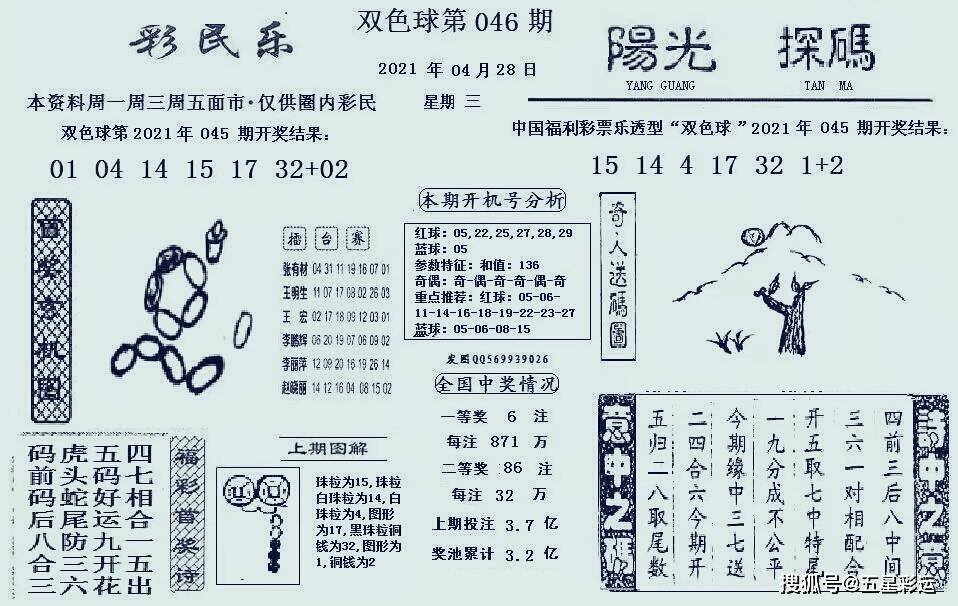 彩民乐
双色球第 046 期
2021 年 04 月 28 日
星期 三
陽光 探碼
YANG GUANG TAN MA
本资料周一周三周五面市·仅供圈内彩民
双色球第 2021 年 045 期开奖结果:
01 04 14 15 17 32+02
中国福利彩票乐透型“双色球”2021 年 045 期开奖结果:
15 14 4 17 32 1+2
擂台赛
张有材 04 31 11 19 16 07 01
王明生 11 07 17 08 02 26 03
王 宏 02 17 18 09 12 03 01
李鹏辉 06 20 19 07 06 09 02
李丽萍 12 09 20 16 19 26 14
赵晓丽 14 12 16 04 08 15 02
本期开机号分析
红球: 05,22,25,27,28,29
蓝球: 05
参数特征: 和值: 136
奇偶: 奇-偶-奇-奇-偶-奇
重点推荐: 红球: 05-06-
11-14-16-18-19-22-23-27
蓝球: 05-06-08-15
发图QQ569939026
全国中奖情况
一等奖 6 注
每注 871 万
二等奖 86 注
每注 32 万
上期投注 3.7 亿
奖池累计 3.2 亿
奇人送碼圖
福彩首奖诗
四七相合一五出
五码好运九开花
虎头蛇尾防三六
码前码后八合三
上期图解
珠粒为15, 珠粒
白珠粒为14, 白
珠粒为4, 图形
为17, 黑珠粒铜
钱为32, 图形为
1, 铜钱为2
四前三后八中间
三六一对相配合
开五取七中特尾
一九分成不公平
今期缘中三七送
二四合六今期开
五归二八取尾数
搜狐号@五星彩运